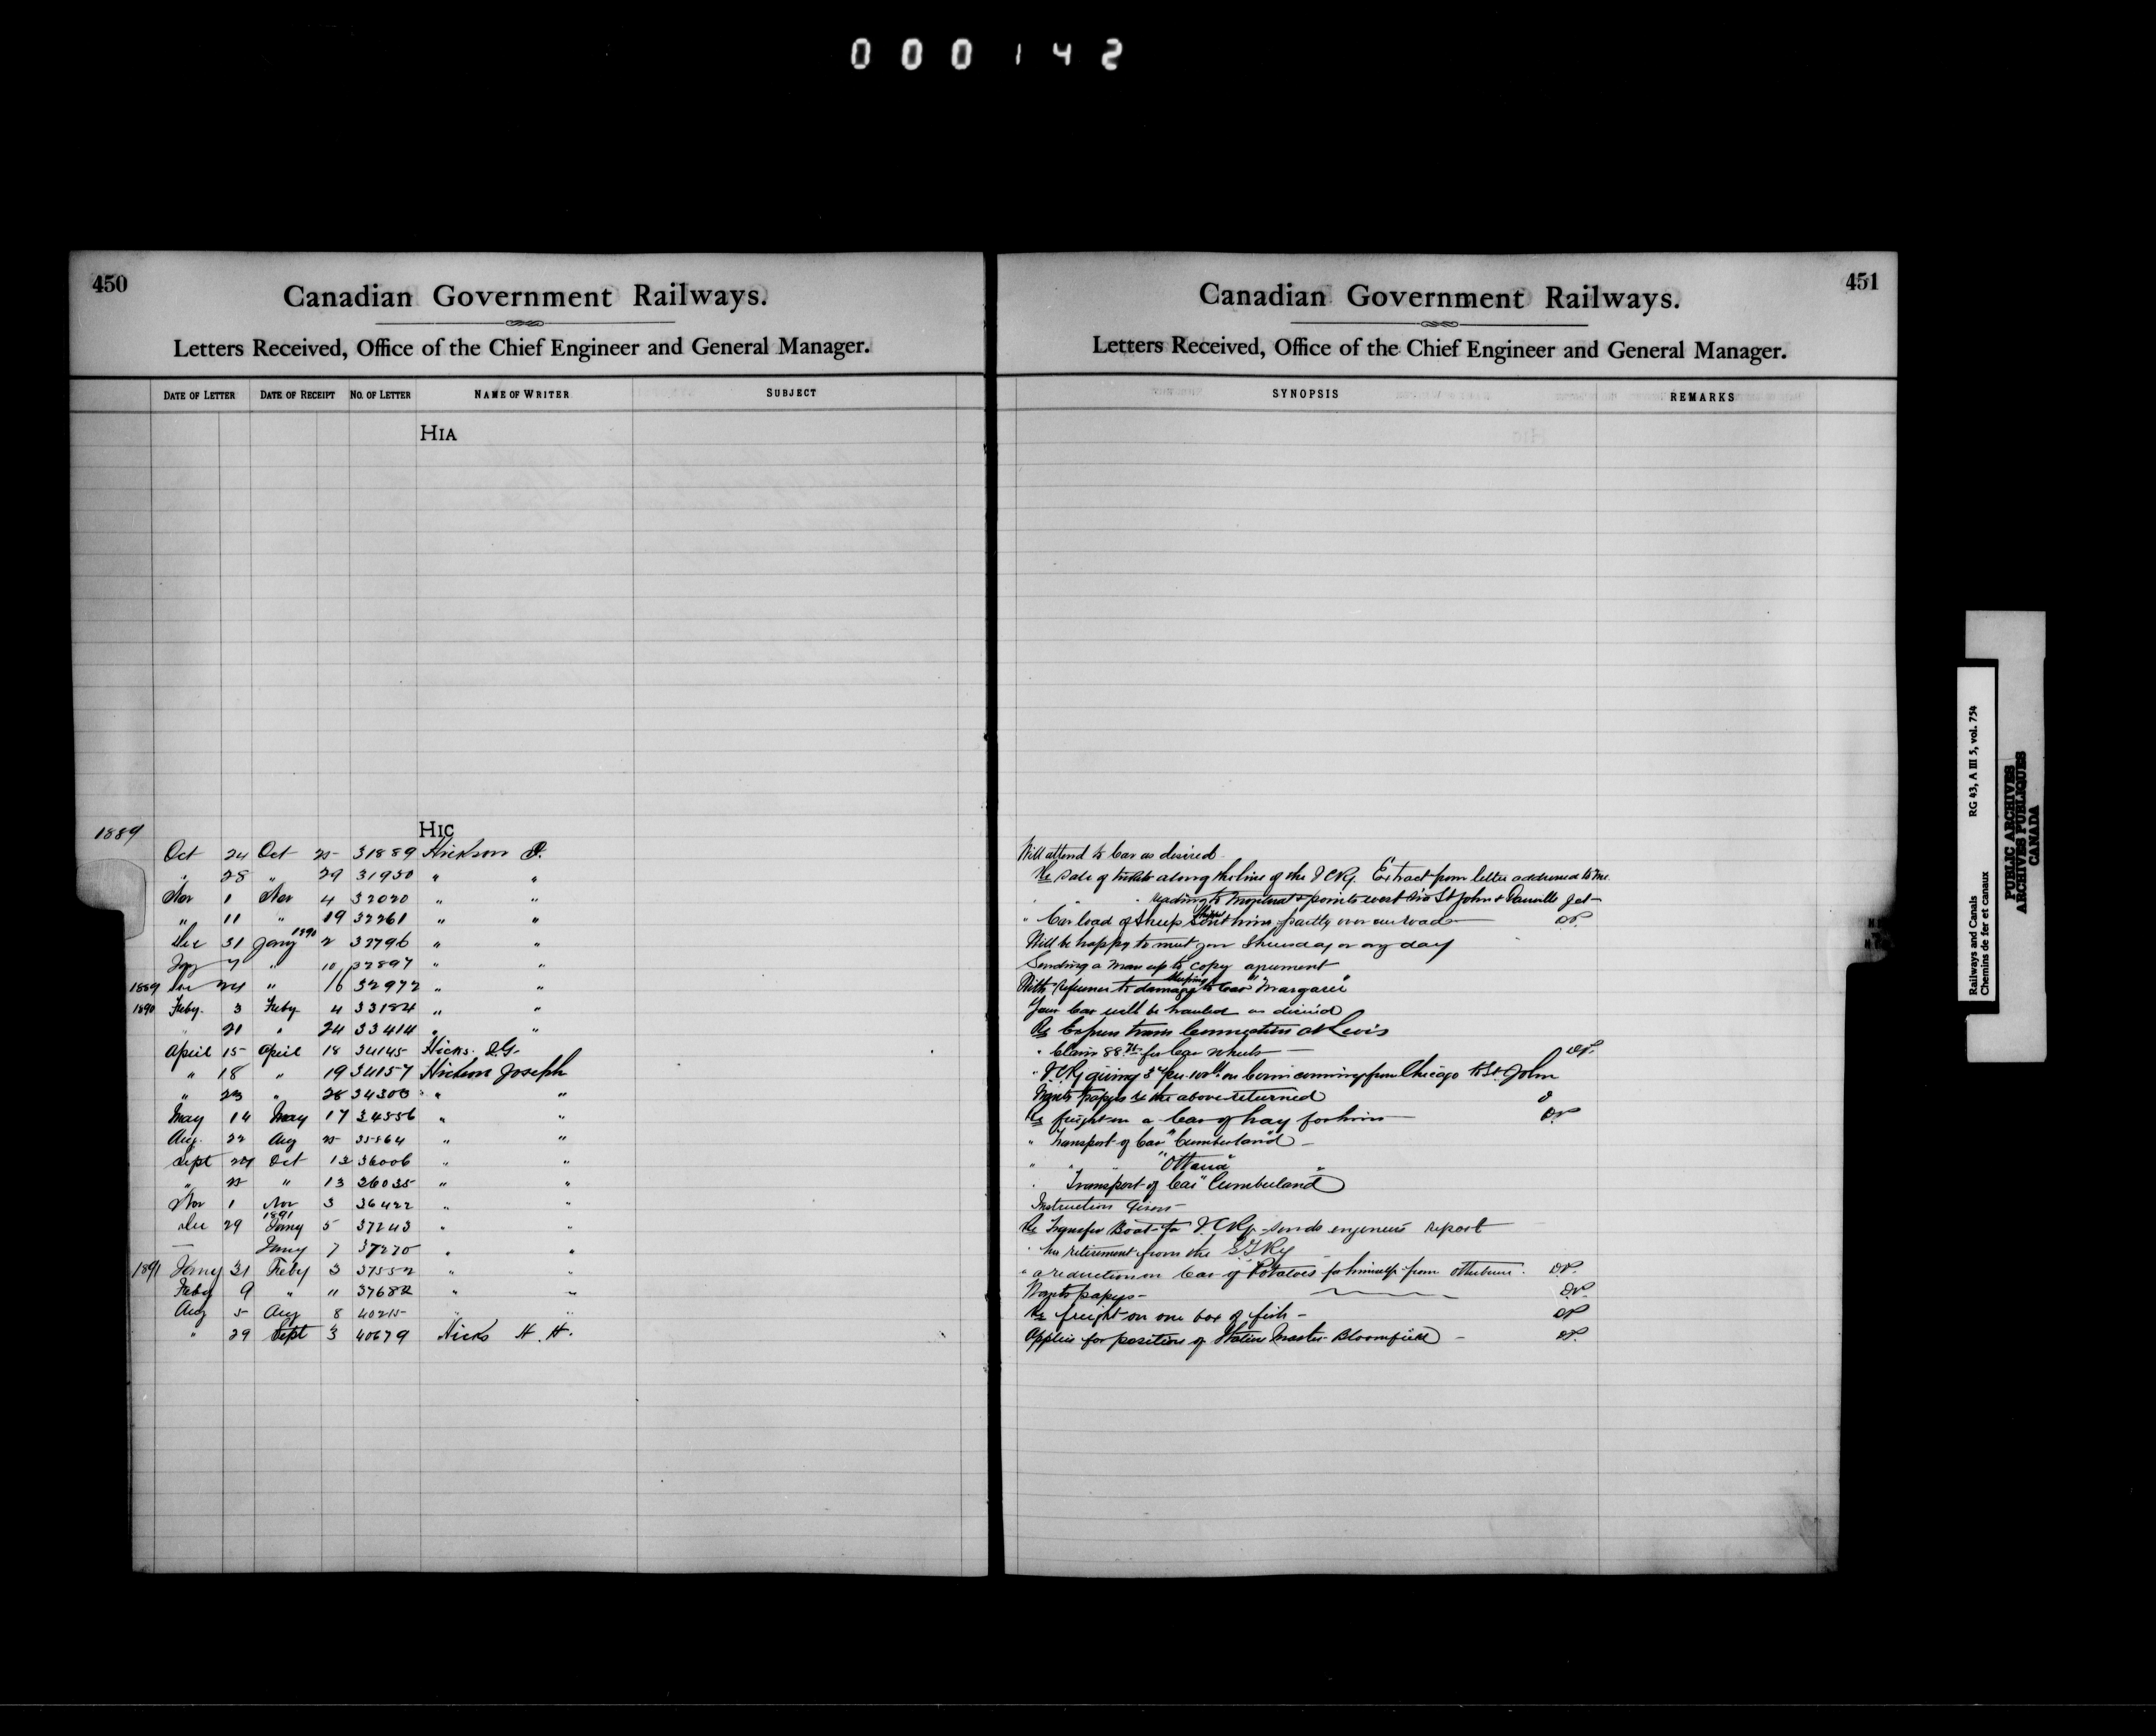 000142
450
Canadian Government Railways.
Letters Received, Office of the Chief Engineer and General Manager.
DATE OF LETTER DATE OF RECEIPT NO. OF LETTER NAME OF WRITER SUBJECT
HIA
1889
HIC
Oct 24 Oct 25 31889 Hickson J.
" 28 " 29 31950 " "
Nov 1 Nov 4 32020 " "
" 11 " 19 32261 " "
Dec 31 Jany 1890 2 32796 " "
Jay 7 " 10 32897 " "
1889 Dec 24 " 16 32972 " "
1890 Feby. 3 Feby 4 33184 " "
" 21 " 24 33414 " "
April 15 April 18 34145 Hicks
" 18 " 19 34157 Hickson Joseph
" 23 " 28 34300 " "
May 14 May 17 34556 " "
Aug. 22 Aug 25 35864 " "
Sept 24 Oct 13 36006 " "
" 25 " 13 36035 " "
Nov 1 Nov 3 36422 " "
1891
Dec 29 Jany 5 37243 " "
— Jany 7 37270 " "
1891 Jany 31 Feby 3 37552 " "
Feby 9 " 11 37682 " "
Aug 5 Aug 8 40215 " "
" 29 Sept 3 40679 Hicks H. H.
451
Canadian Government Railways.
Letters Received, Office of the Chief Engineer and General Manager.
SYNOPSIS REMARKS
Will attend to Car as desired
Re Sale of tickets along the line of the ICRy. Extract from letter addressed to me
" " " reading to Montreal & points west via St John & Danville Jct
" Car load of Sheep sent him partly over our road OP
Will be happy to meet you Thursday or any day
Sending a man up to copy
With reference to damage to Sleeping Car "Margaree"
Your Car will be hauled as desired
Re Express train Connection at Levis
" Claim 88 for Car wheels OP.
" ICRy giving on coming from Chicago to St. John
Wants papers re the above returned
Re freight on a Car of hay for him OP
" Transport of Car "Cumberland"
" " " "Ottawa"
" Transport of Car "Cumberland"
Instruction given
Re Transfer Boat for ICRy sends engineers report
" his retirement from the GTRy
" a reduction on Car of Potatoes for himself from OP.
Wants papers OP
Re freight on one box of fish OP
Applies for position of Station Master Bloomfield OP.
Railways and Canals RG 43, A III 5, vol. 754
Chemins de fer et canaux
PUBLIC ARCHIVES
ARCHIVES PUBLIQUES
CANADA